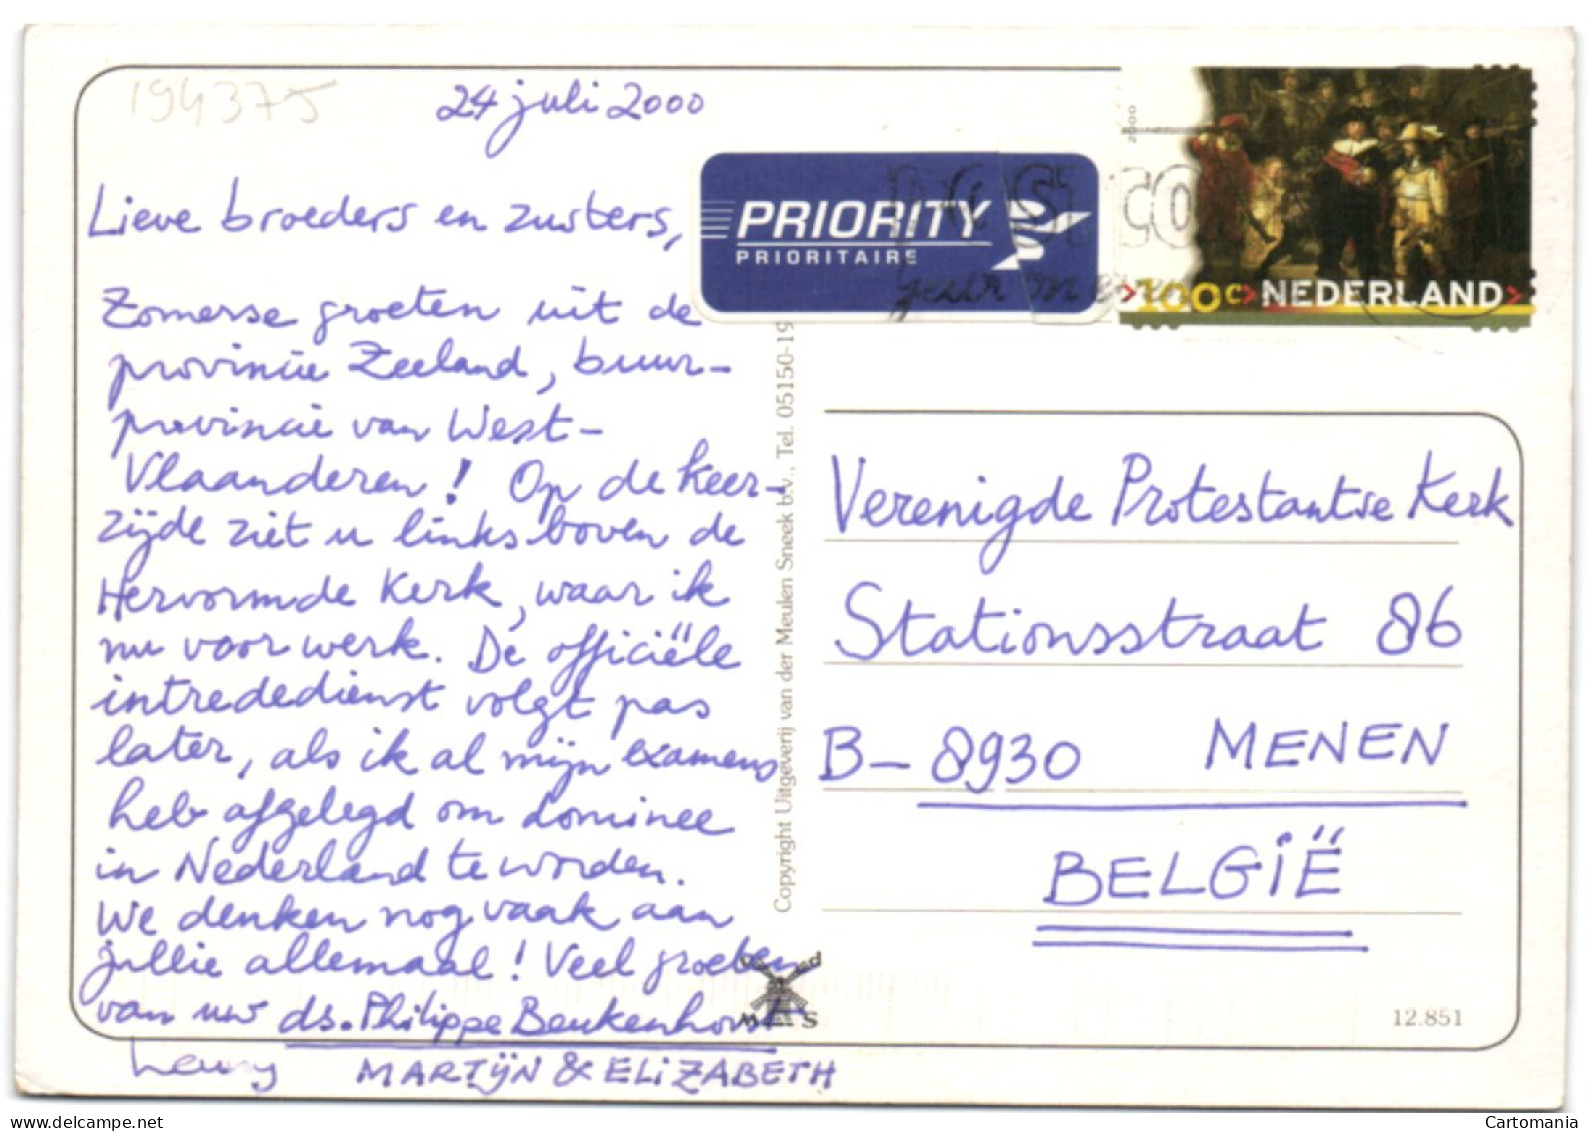 194375
24 juli 2000
Lieve broeders en zusters,
Zomerse groeten uit de
provincie Zeeland, buur-
provincie van West-
Vlaanderen! Op de keer-
zijde ziet u links boven de
Hervormde Kerk, waar ik
nu voor werk. De officiële
intrededienst volgt pas
later, als ik al mijn examens
heb afgelegd om dominee
in Nederland te worden.
We denken nog vaak aan
jullie allemaal! Veel groeten
van uw ds. Philippe Beukenhorst
MARTIJN & ELIZABETH
PRIORITY
PRIORITAIRE
2000
100c NEDERLAND
Copyright Uitgeverij van der Meulen Sneek b.v., Tel. 05150-19
Verenigde Protestantse Kerk
Stationsstraat 86
B-8930 MENEN
BELGIË
M S
12.851
www.delcampe.net
Cartomania